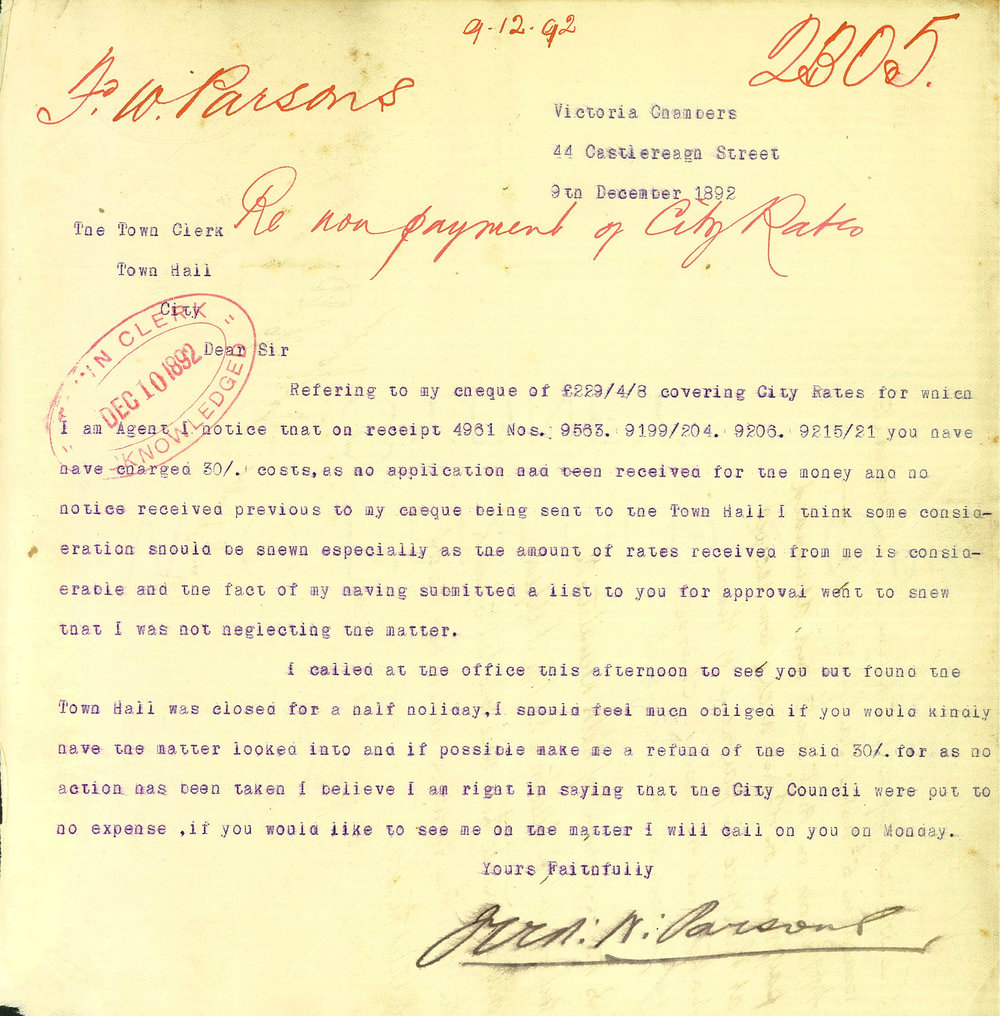 9·12·92
2305.
F. W. Parsons
Victoria Chambers
44 Castlereagh Street
9th December 1892
Re non payment of City Rates
The Town Clerk
Town Hall
City
TOWN CLERK
DEC 10 1892
ACKNOWLEDGED
Dear Sir
Refering to my cheque of £229/4/8 covering City Rates for which
I am Agent I notice that on receipt 4961 Nos. 9563. 9199/204. 9206. 9215/21 you have
have charged 30/. costs, as no application had been received for the money and no
notice received previous to my cheque being sent to the Town Hall I think some consid-
eration should be shewn especially as the amount of rates received from me is consid-
erable and the fact of my having submitted a list to you for approval went to shew
that I was not neglecting the matter.
I called at the office this afternoon to see you but found the
Town Hall was closed for a half holiday, I should feel much obliged if you would kindly
have the matter looked into and if possible make me a refund of the said 30/. for as no
action has been taken I believe I am right in saying that the City Council were put to
no expense ,if you would like to see me on the matter I will call on you on Monday.
Yours Faithfully
Fredk. W. Parsons